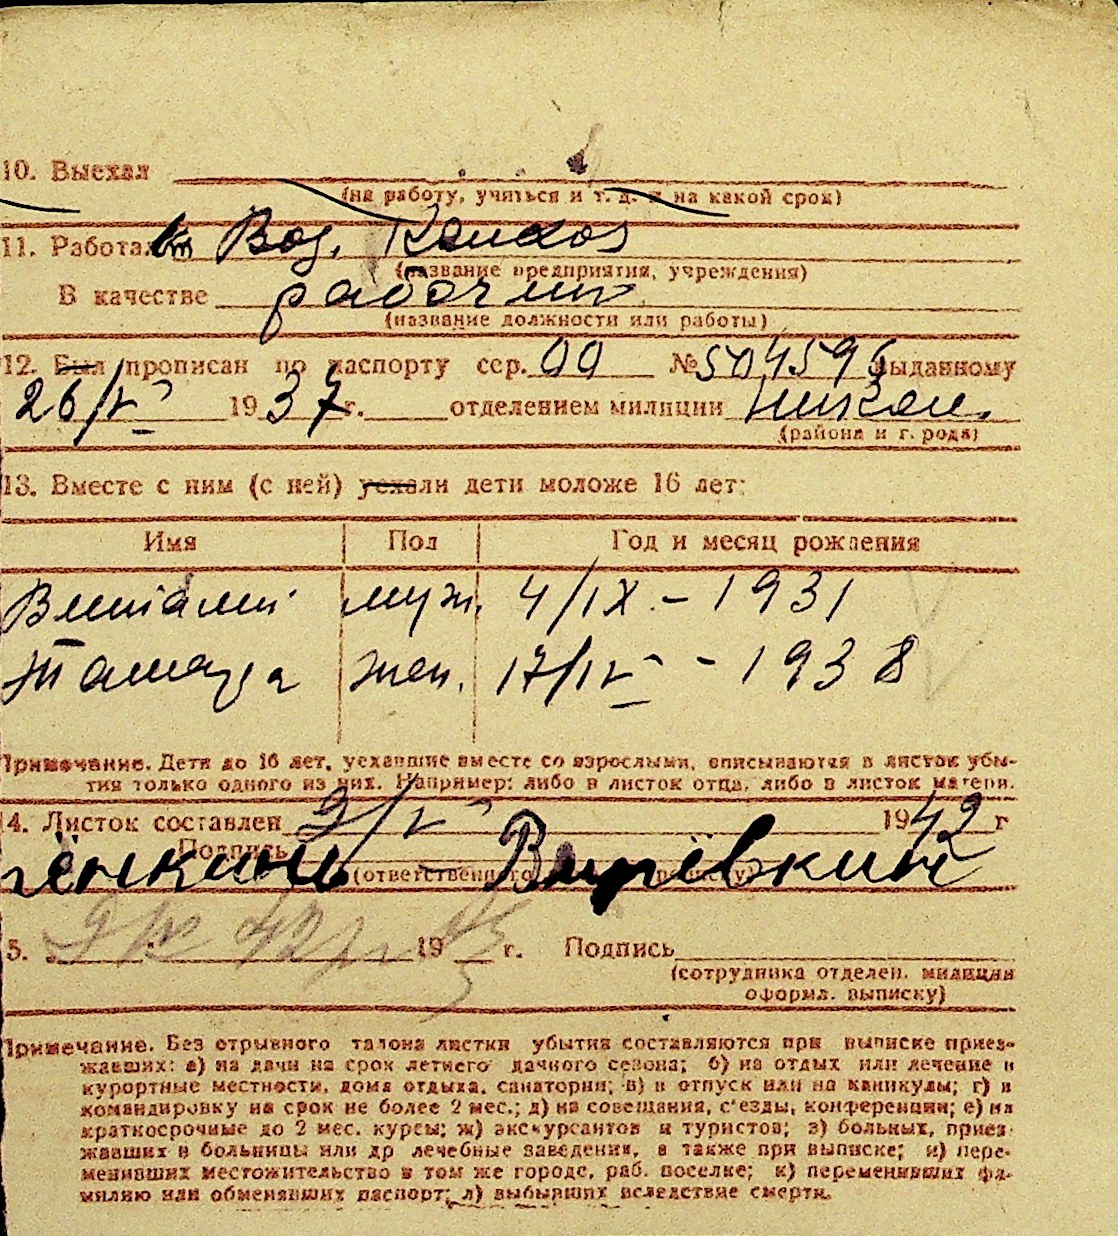 10. Выехал
(на работу, учиться и т. д. и на какой срок)
11. Работал в Вод.
(название предприятия, учреждения)
В качестве рабочий
(название должности или работы)
12. Был прописан по паспорту сер. № 504596 выданному
26/V 1937 г. отделением милиции
(района и города)
13. Вместе с ним (с ней) уехали дети моложе 16 лет:
Имя Пол Год и месяц рождения
муж. 4/IX - 1931
Тамара жен. 17/IV - 1938
Примечание. Дети до 16 лет, уехавшие вместе со взрослыми, вписываются в листок убы-
тия только одного из них. Например: либо в листок отца, либо в листок матери.
14. Листок составлен 9/V 1942 г
Подпись
(ответственного
5. 19 г. Подпись
(сотрудника отделен. милиции
оформл. выписку)
Примечание. Без отрывного талона листки убытия составляются при выписке приез-
жавших: а) на дачи на срок летнего дачного сезона; б) на отдых или лечение в
курортные местности, дома отдыха, санатории; в) в отпуск или на каникулы; г) в
командировку на срок не более 2 мес.; д) на совещания, с'езды, конференции; е) на
краткосрочные до 2 мес. курсы; ж) экскурсантов и туристов; з) больных, приез-
жавших в больницы или др лечебные заведения, а также при выписке; и) пере-
менивших местожительство в том же городе, раб. поселке; к) переменивших фа-
милию или обменявших паспорт; л) выбывших вследствие смерти.